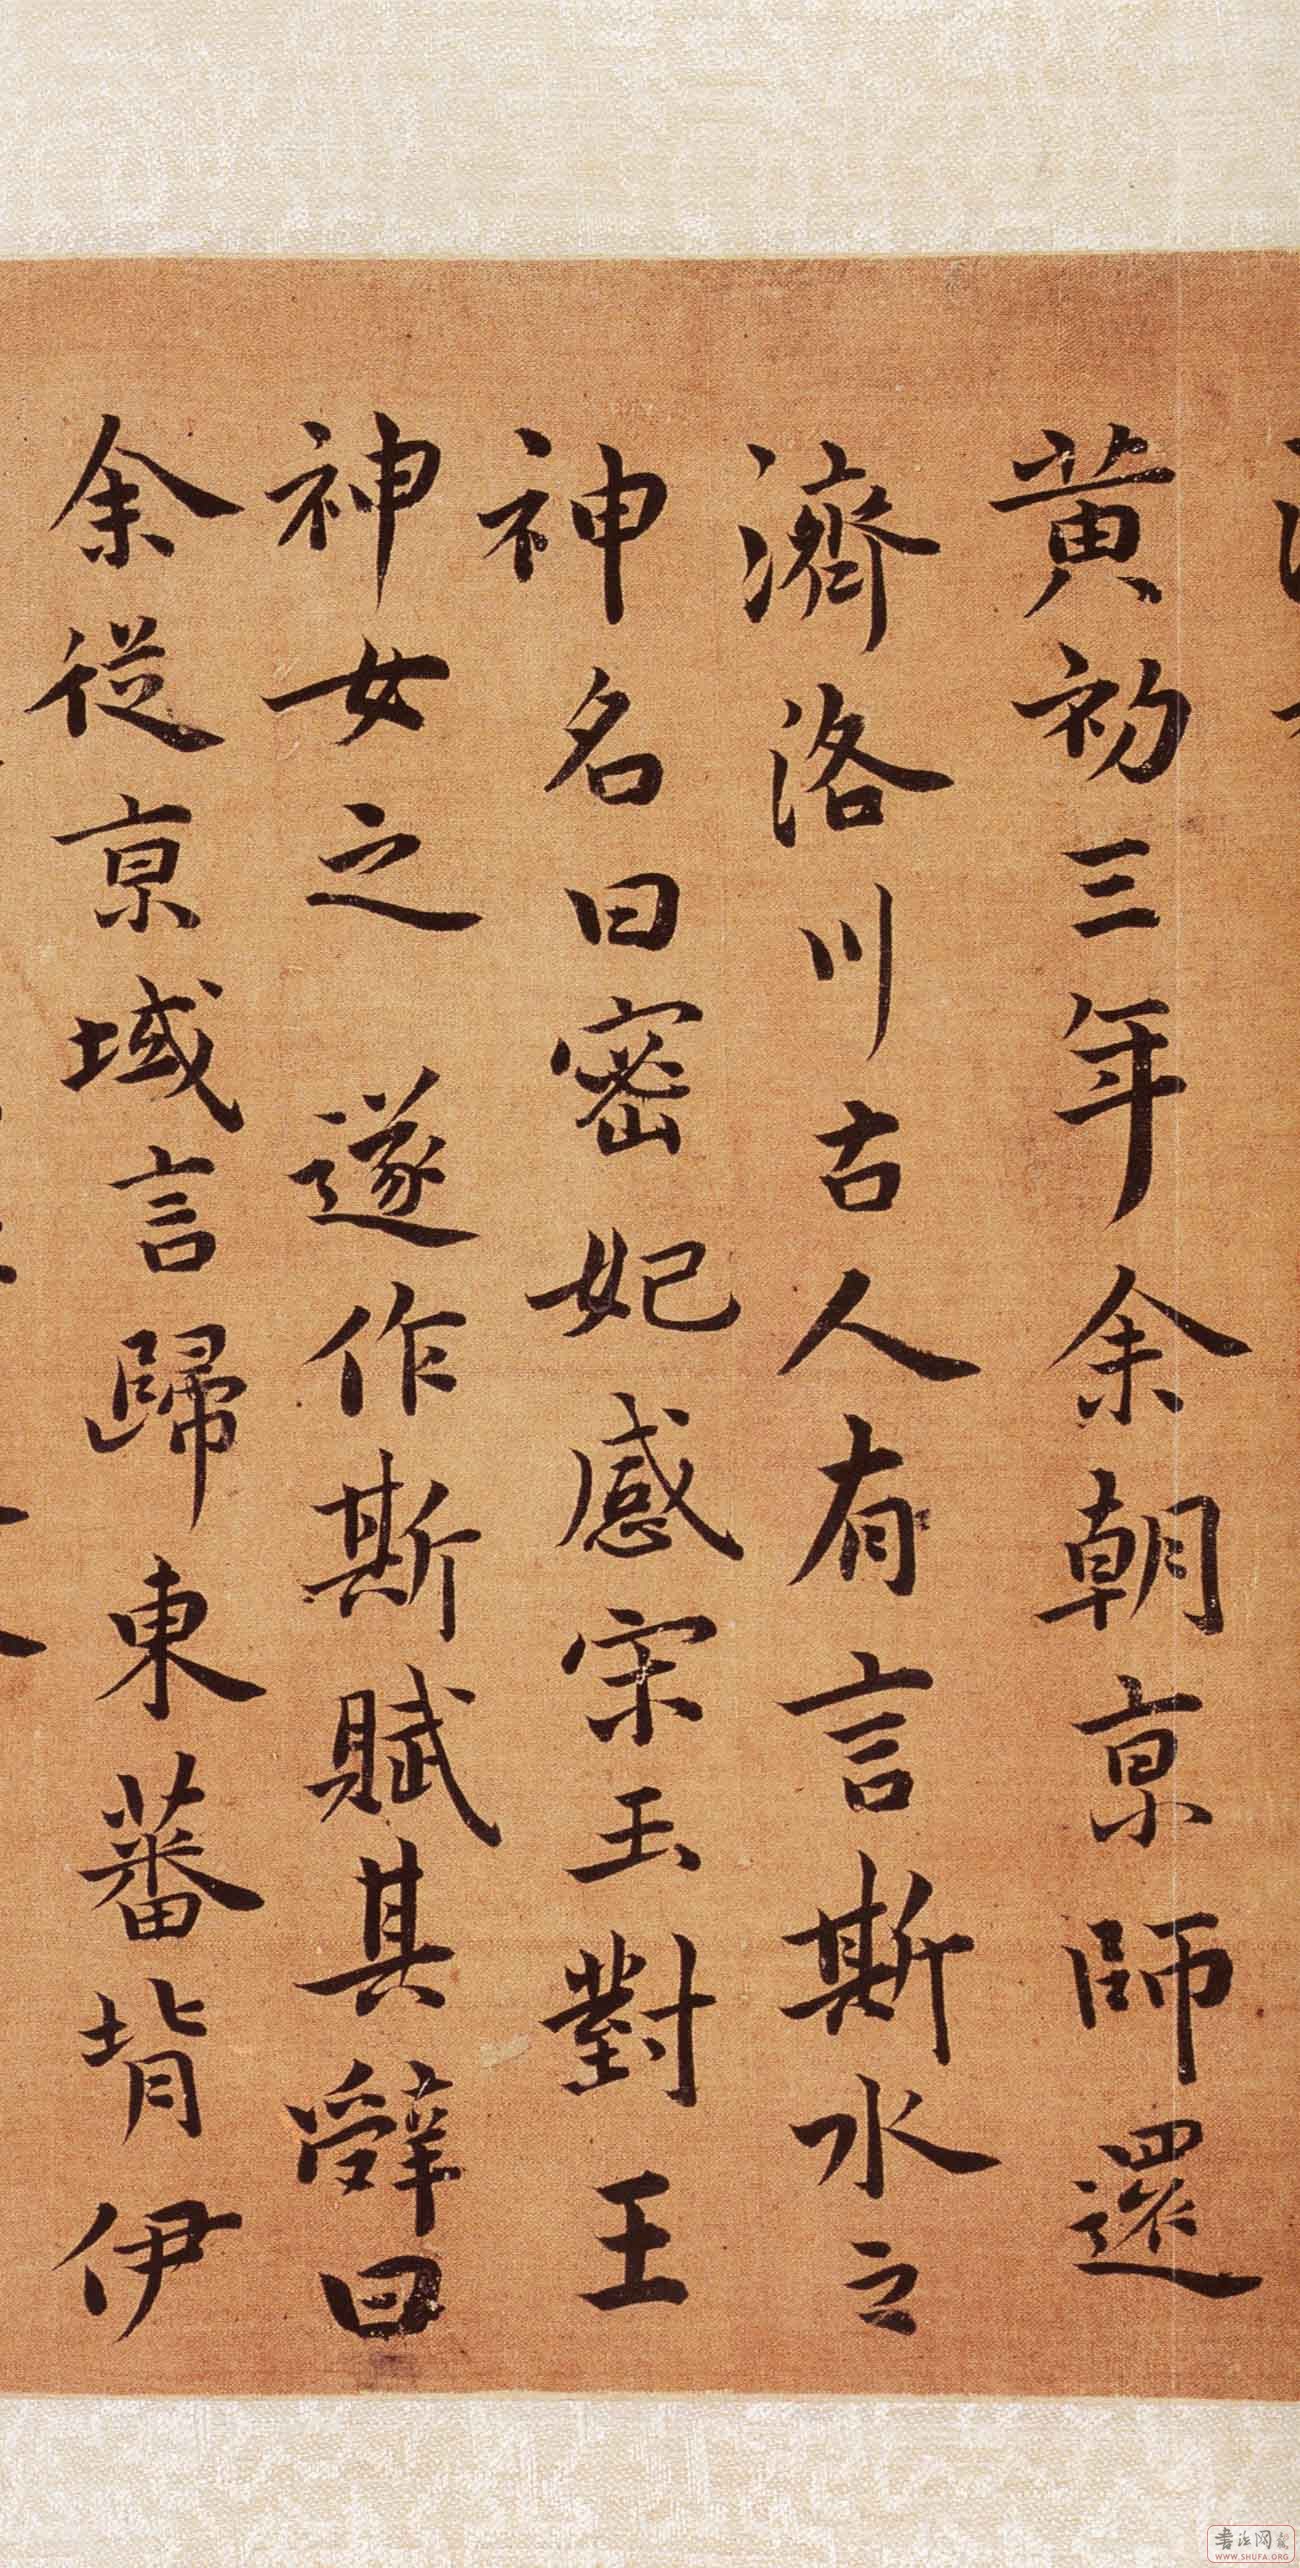 黄初三年余朝京師還
濟洛川古人有言斯水之
神名曰密妃感宗玉對王
神女之遂作斯賦其辭曰
余從京域言歸東蕃背伊
書法网
WWW.SHUFA.ORG